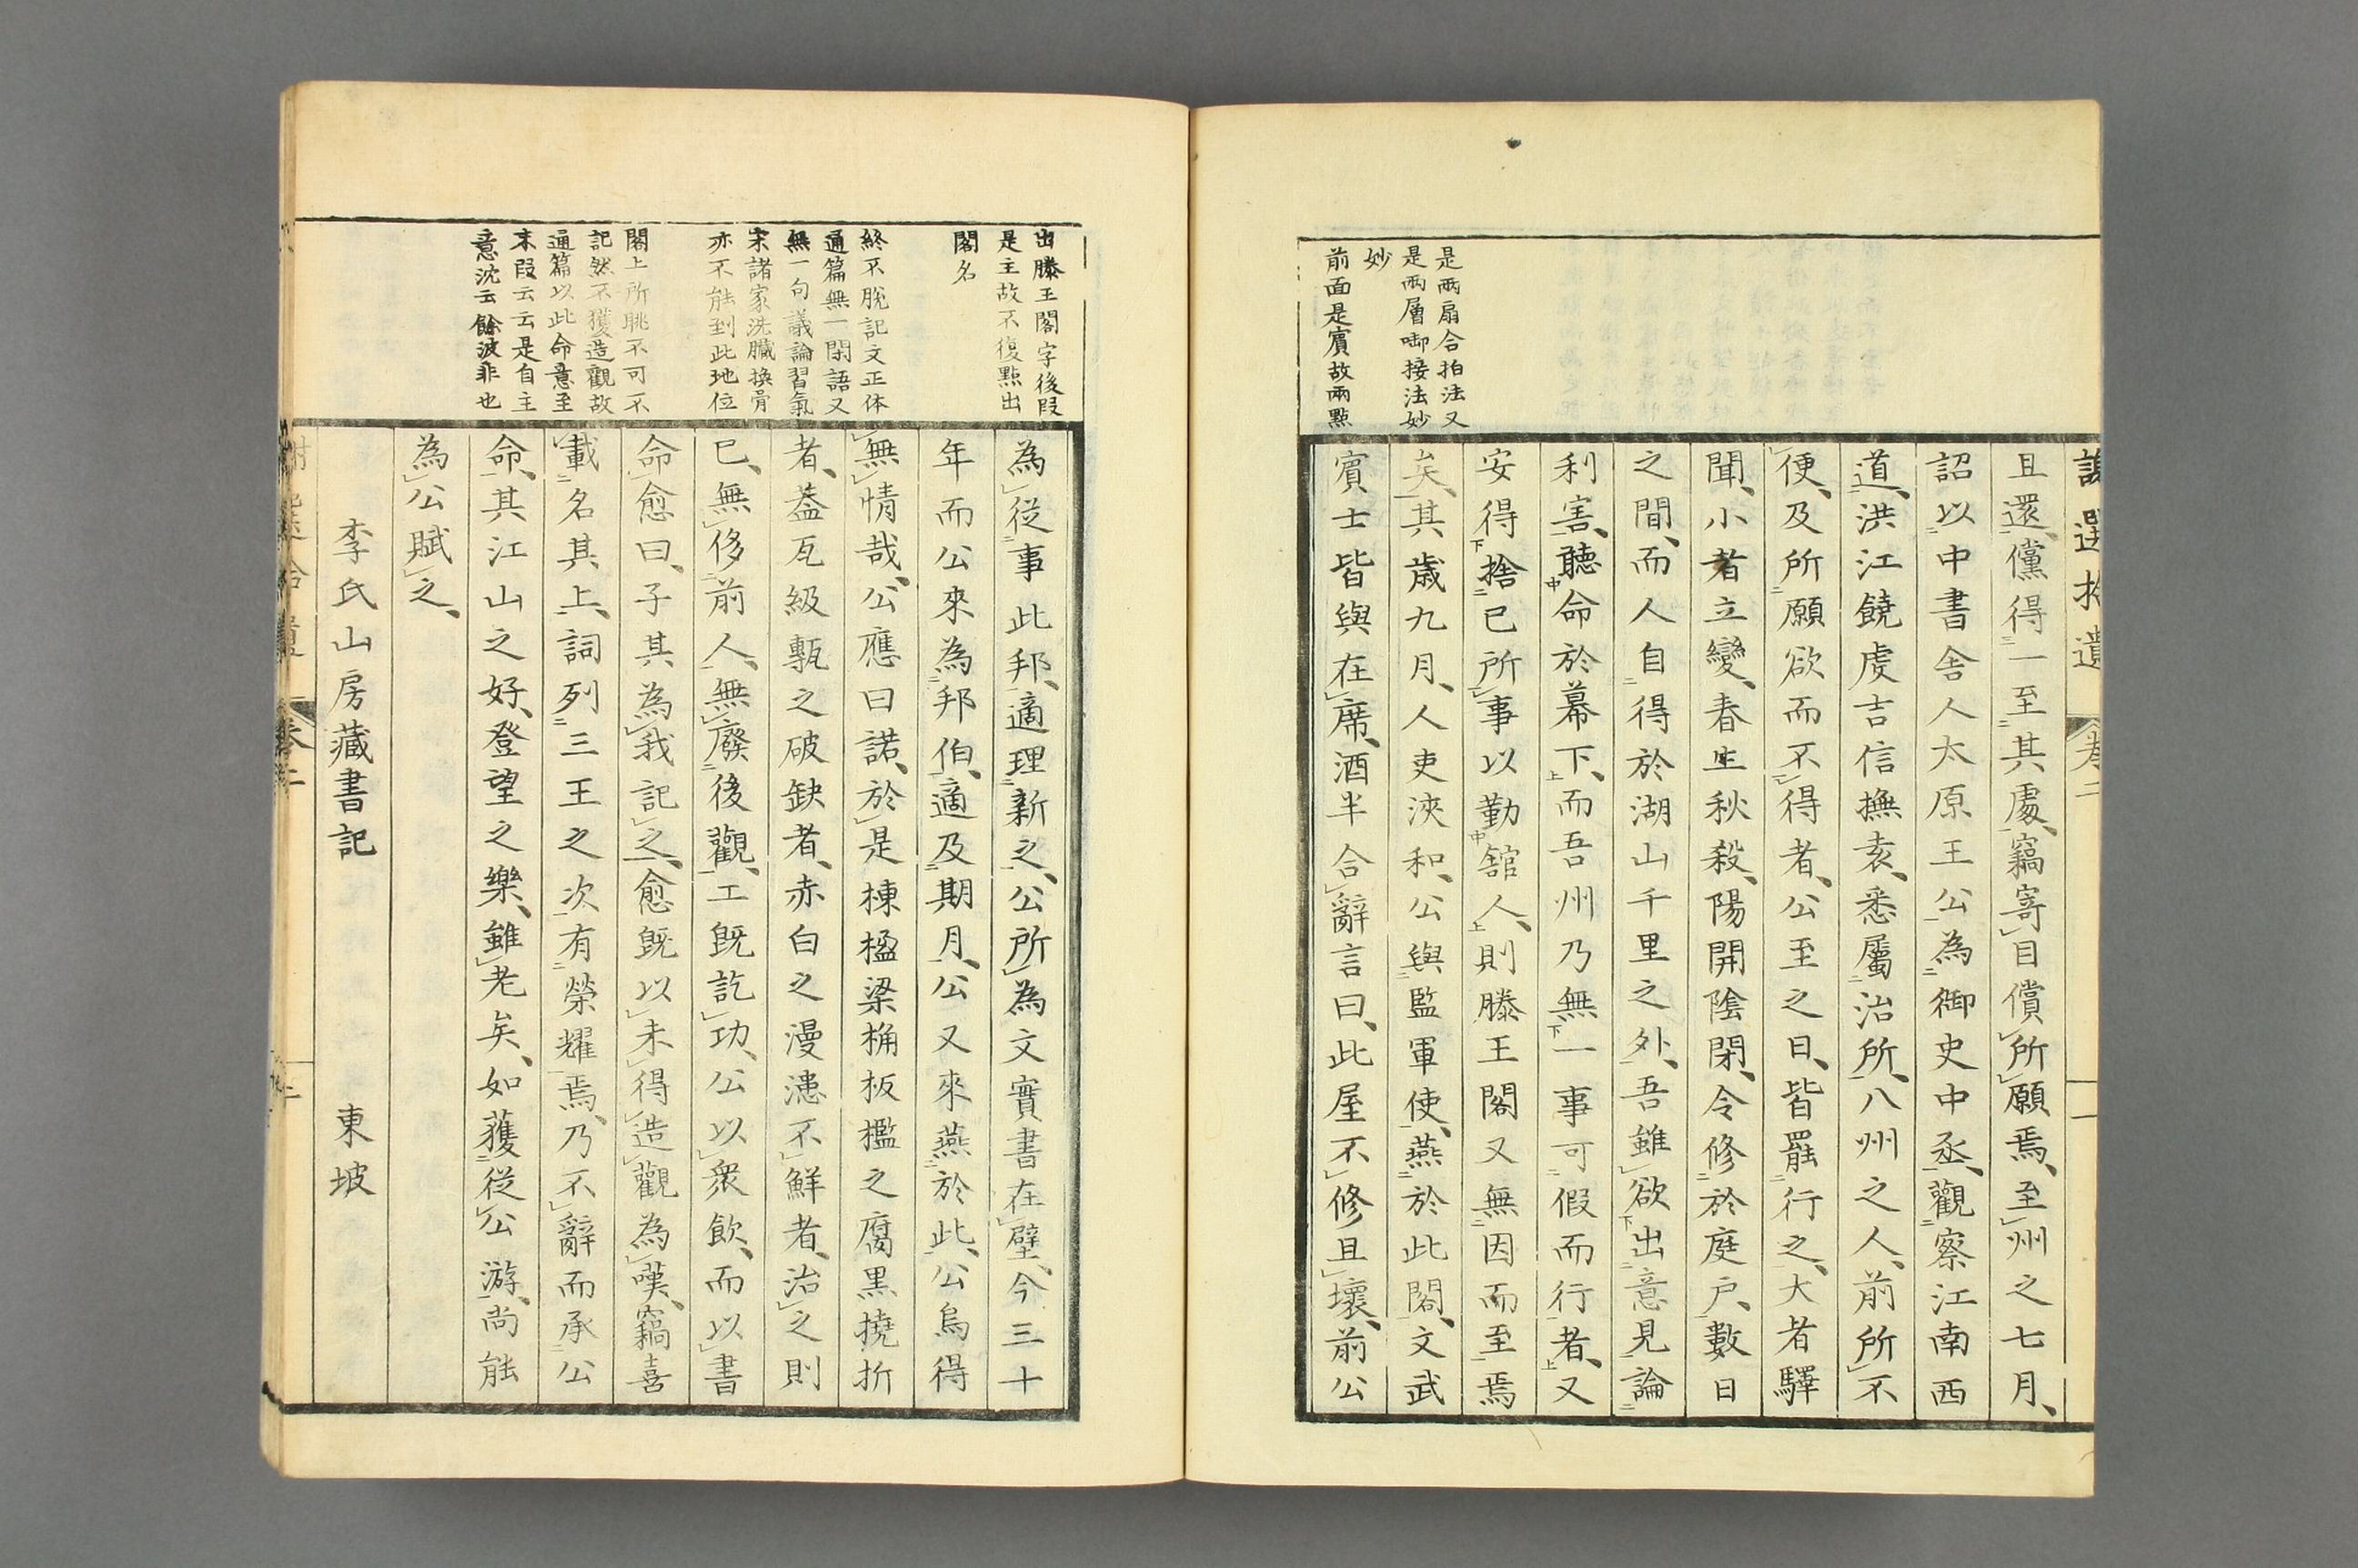 是兩扇合拍法又
是兩層啣接法妙
妙
前面是賓故兩點
謝選拾遺
卷二
一
且還、儻得一至其處、竊寄目償所願焉、至州之七月、
詔以中書舍人太原王公為御史中丞、觀察江南西
道、洪江饒虔吉信撫袁、悉屬治所、八州之人、前所不
便、及所願欲而不得者、公至之日、皆罷行之、大者驛
聞、小者立變、春生秋殺、陽開陰閉、令修於庭戶、數日
之間、而人自得於湖山千里之外、吾雖欲出意見論
利害、聽命於幕下、而吾州乃無一事可假而行者、又
安得捨已所事以勤舘人、則滕王閣又無因而至焉
矣、其歲九月、人吏浹和、公與監軍使、燕於此閣、文武
賓士皆與在席、酒半合辭言曰、此屋不修且壞、前公
出滕王閣字後段
是主故不復點出
閣名
終不脫記文正体
通篇無一閑語又
無一句議論習氣
宋諸家洗臟換骨
亦不能到此地位
閣上所眺不可不
記然不獲造觀故
通篇以此命意至
末段云云是自主
意沈云餘波非也
為從事此邦、適理新之、公所為文實書在壁、今三十
年而公來為邦伯、適及期月、公又來燕於此、公烏得
無情哉、公應曰諾、於是棟楹梁桷板檻之腐黑撓折
者、蓋瓦級甎之破缺者、赤白之漫漶不鮮者、治之則
已、無侈前人、無廢後觀、工既訖功、公以衆飲、而以書
命愈曰、子其為我記之、愈既以未得造觀為嘆、竊喜
載名其上、詞列三王之次、有榮耀焉、乃不辭而承公
命、其江山之好、登望之樂、雖老矣、如獲從公游、尚能
為公賦之、
李氏山房藏書記　東坡
卷二